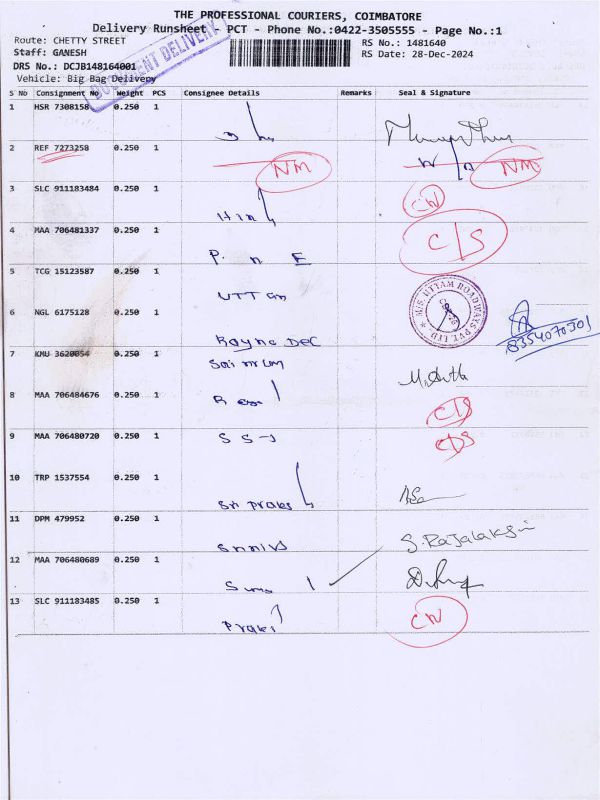 THE PROFESSIONAL COURIERS, COIMBATORE
Delivery Runsheet - PCT - Phone No.:0422-3505555 - Page No.:1
Route: CHETTY STREET
RS No.: 1481640
Staff: GANESH
RS Date: 28-Dec-2024
DRS No.: DCJB148164001
Vehicle: Big Bag Delivery
DOCUMENT DELIVERY
S No Consignment No Weight PCS Consignee Details Remarks Seal & Signature
1 HSR 7308158 0.250 1
2 REF 7273258 0.250 1 NM NM
3 SLC 911183484 0.250 1 CN
4 MAA 706481337 0.250 1 P. n E C/S
5 TCG 15123587 0.250 1 UTTam
M/S. UTTAM ROADWAYS PVT. LTD.
6 NGL 6175128 0.250 1 Rayna DEC
7 KMU 3620054 0.250 1
8 MAA 704684676 0.250 1 C/S
9 MAA 706480720 0.250 1 S S-J C/S
10 TRP 1537554 0.250 1 Sri Praks
11 DPM 479952 0.250 1 Srnivs S.Rajalakshi
12 MAA 706480689 0.250 1
13 SLC 911183485 0.250 1 Praki CN